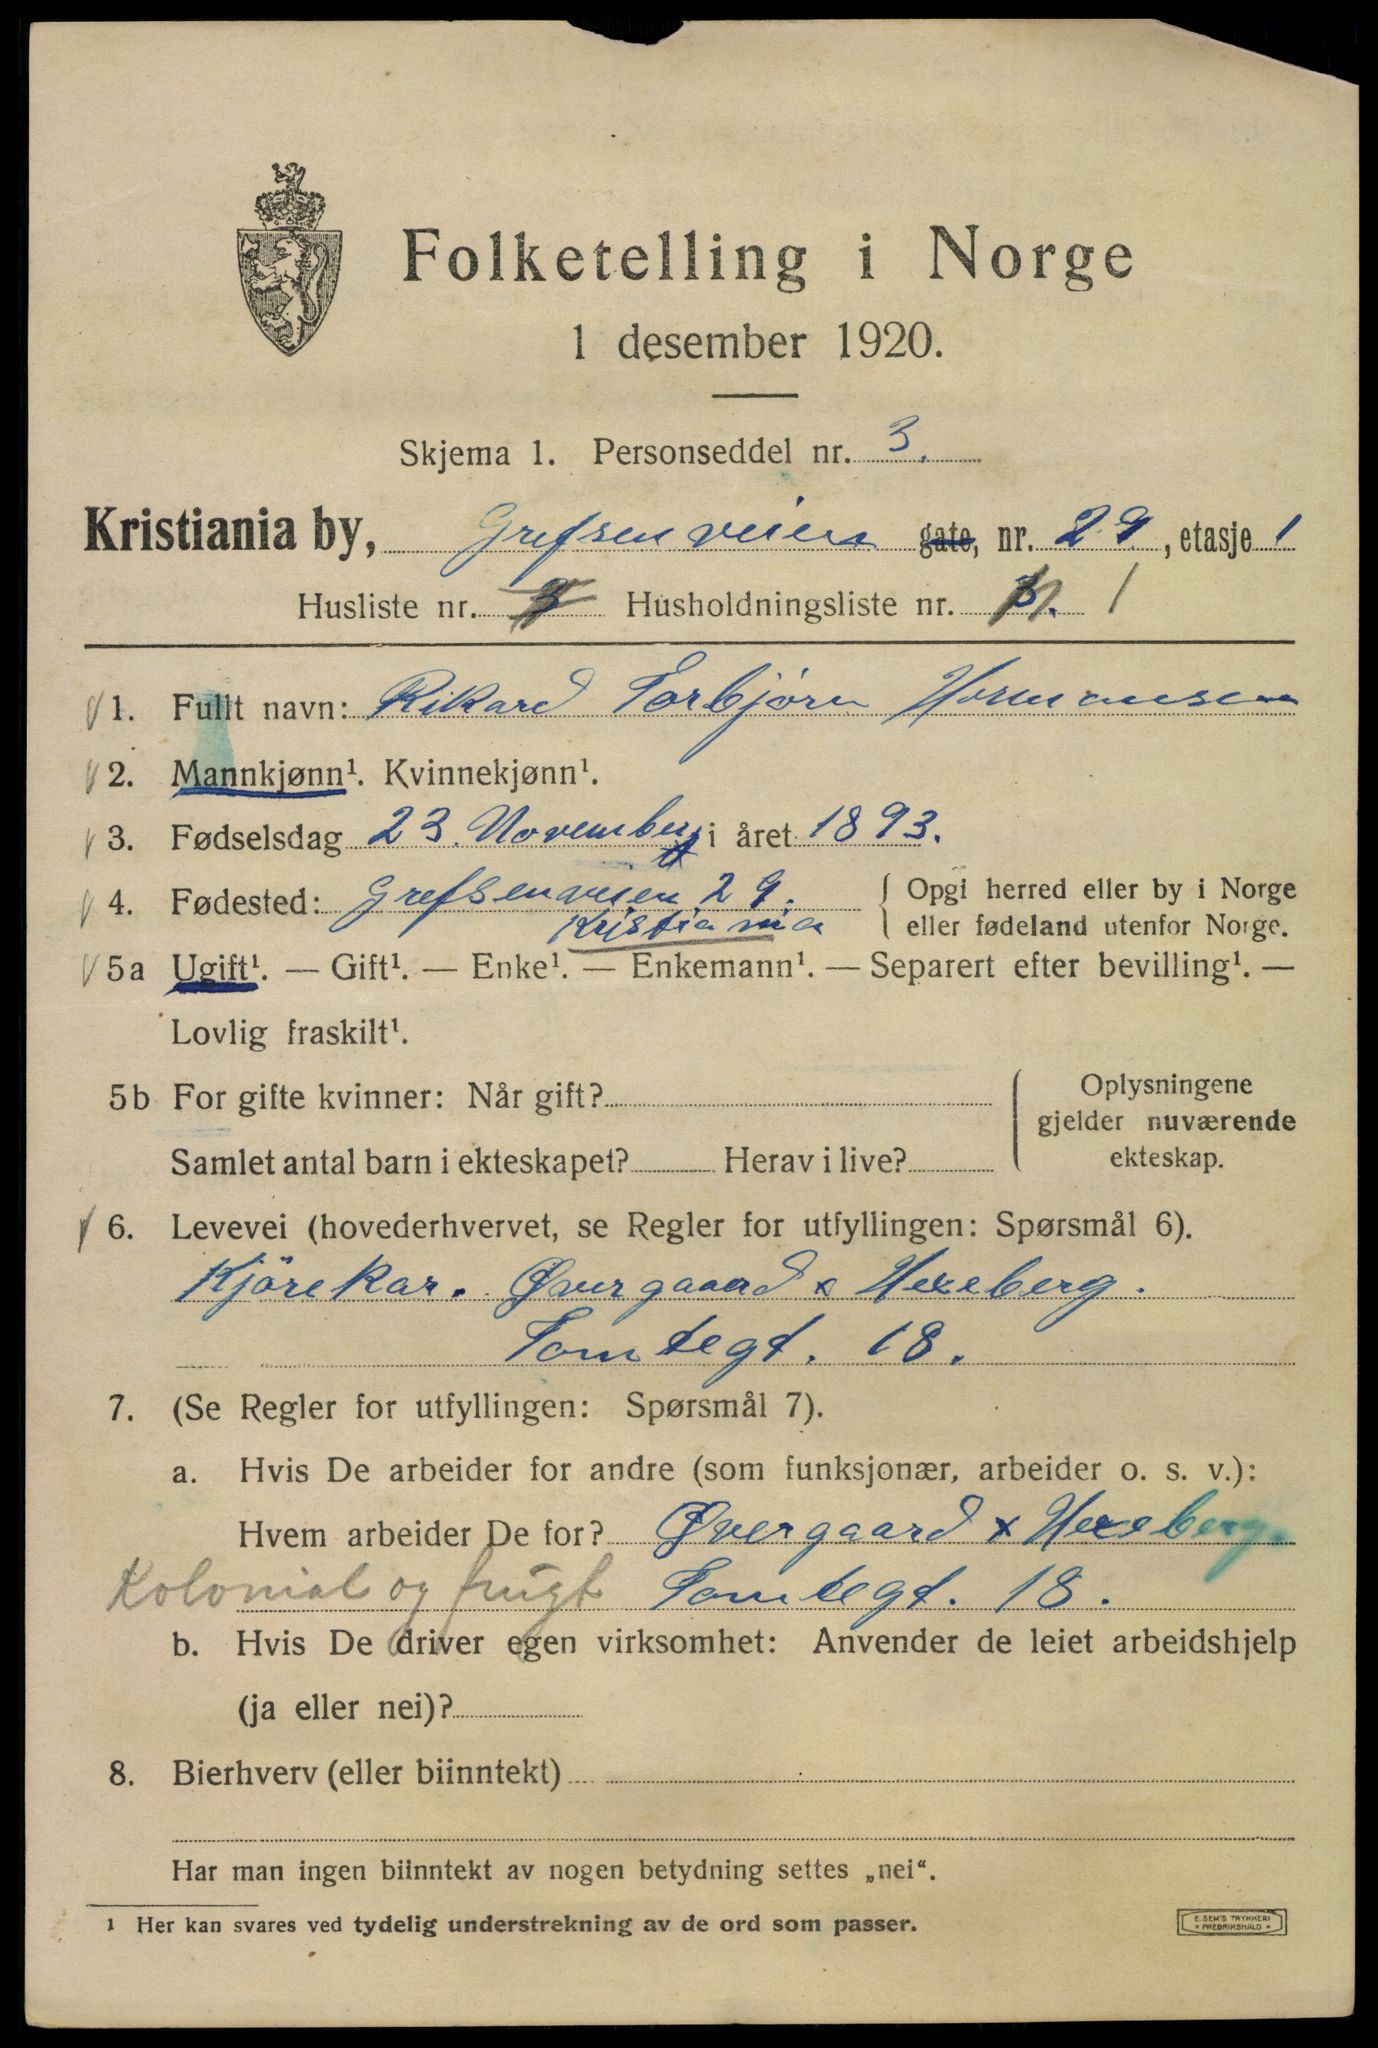 Folketelling i Norge
1 desember 1920.
Skjema 1. Personseddel nr. 3.
Kristiania by, Grefsenveien gate, nr. 29, etasje 1
Husliste nr. 3 Husholdningsliste nr. 3. 1
1. Fullt navn: Rikard Torbjörn Hermansen
2. Mannkjønn¹. Kvinnekjønn¹.
3. Fødselsdag 23. November i året 1893.
4. Fødested: Grefsenveien 29. Opgi herred eller by i Norge
Kristiania eller fødeland utenfor Norge.
5a Ugift¹. — Gift¹. — Enke¹. — Enkemann¹. — Separert efter bevilling¹. —
Lovlig fraskilt¹.
5b For gifte kvinner: Når gift? Oplysningene
gjelder nuværende
Samlet antal barn i ekteskapet? Herav i live? ekteskap.
6. Levevei (hovederhvervet, se Regler for utfyllingen: Spørsmål 6).
Kjörekar. Øvergaard & Hexeberg.
Tomtegt. 18.
7. (Se Regler for utfyllingen: Spørsmål 7).
a. Hvis De arbeider for andre (som funksjonær, arbeider o. s. v.):
Hvem arbeider De for? Øvergaard & Hexeberg.
Kolonial og frugt Tomtegt. 18.
b. Hvis De driver egen virksomhet: Anvender de leiet arbeidshjelp
(ja eller nei)?
8. Bierhverv (eller biinntekt)
Har man ingen biinntekt av nogen betydning settes „nei“.
1 Her kan svares ved tydelig understrekning av de ord som passer.
E. SEM'S TRYKKERI
* FREDRIKSHALD *